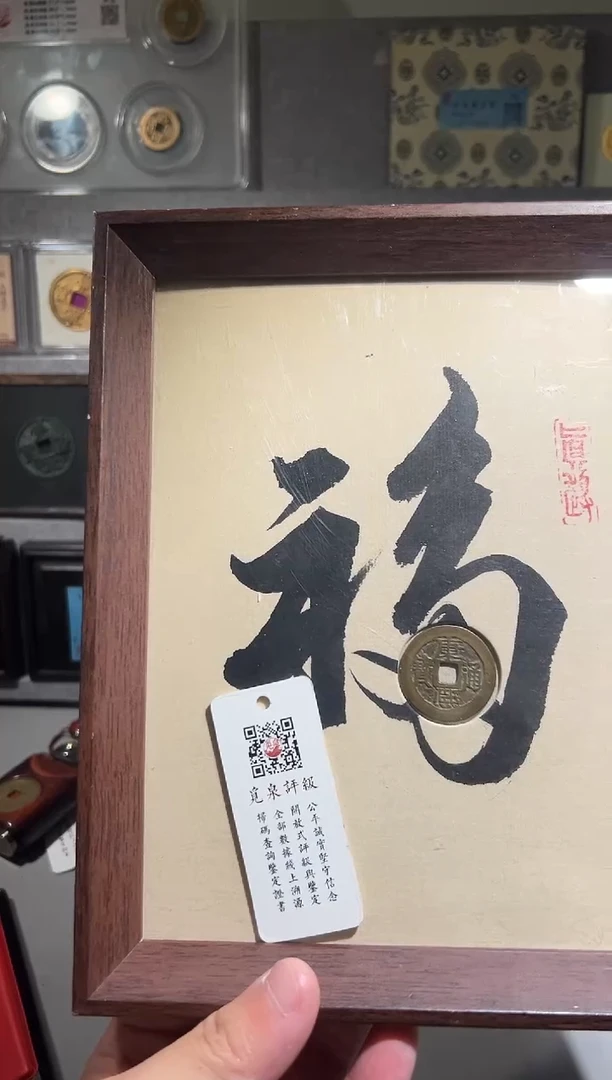 福
康熙通寳
覓泉評級
公平誠實堅守信念
開放式評級與鑒定
全部數據綫上溯源
掃碼查詢鑒定證書